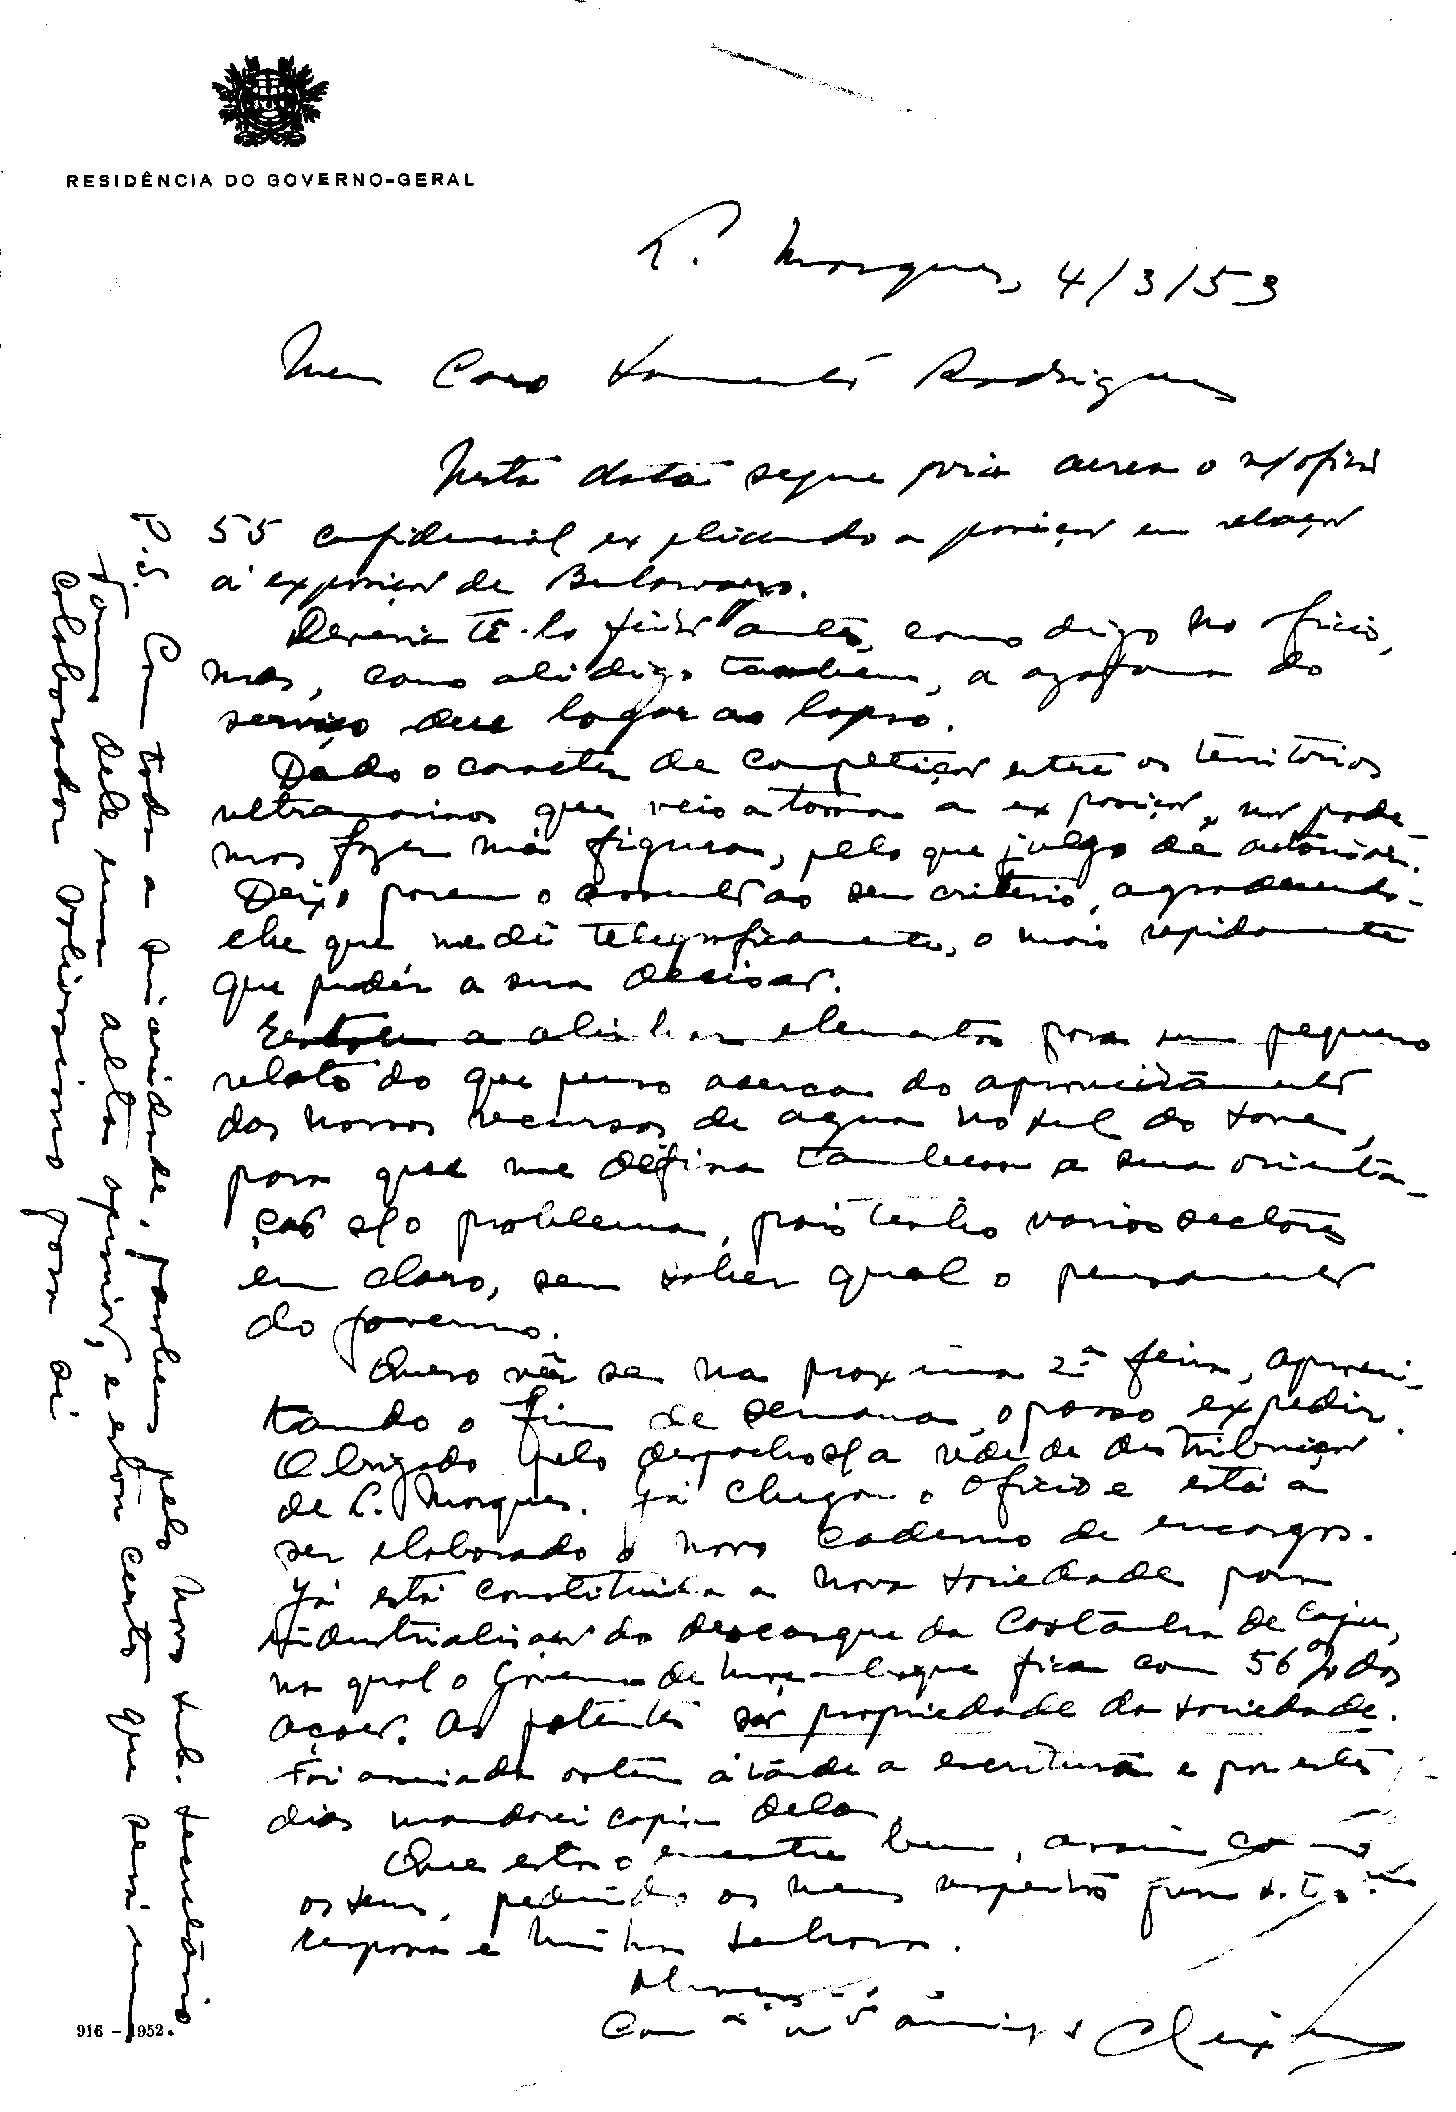 RESIDÊNCIA DO GOVERNO-GERAL
L. Marques, 4/3/53
Meu Caro Sarmento Rodrigues
Nesta data segue por via aerea o n/ oficio
55 confidencial explicando a posição em relação
á exposição de Bulawayo.
Deveria tê-lo feito antes, como digo no oficio,
mas, como ali digo tambem, a azafama do
serviço deu logar ao lapso.
Dado o caracter de competição entre os territorios
ultramarinos que veio a tomar a exposição, não pode-
mos fazer má figura, pelo que julgo de autorisar.
Deixo porem o assunto ao seu criterio, agradecendo-
lhe que me dê telegraficamente, o mais rapidamente
que puder a sua decisão.
Estou a alinhar elementos para um pequeno
relato do que penso acerca do aproveitamento
dos nossos recursos de agua no Sul do Save,
para que me defina tambem a sua orienta-
ção s/ o problema, pois tenho varios sectores
em claro, sem saber qual o pensamento
do Governo.
Quero vêr se na proxima 2ª feira, aprovei-
tando o fim de semana, o posso expedir.
Obrigado pelo despacho s/ a rêde de distribuição
de L. Marques. Já chegou o oficio e está a
ser elaborado o novo caderno de encargos.
Já está constituida a nova Sociedade para
industrialisação do descasque da Castanha de Caju,
na qual o Governo de Moçambique fica com 56% das
ações. As patentes são propriedade da Sociedade.
Foi assinada ontem á tarde a escritura e por estes
dias mandarei copia dela.
Que esteja bem, assim como
os seus, pedindo os meus respeitos para S.
esposa e minha Senhora.
Com
amigo
P.S. Com toda a sinceridade, parabens pelo novo sub. secretário
Tenho dele uma alta opinião, e estou certo que será um
colaborador valiosissimo para si
916 - 1952.